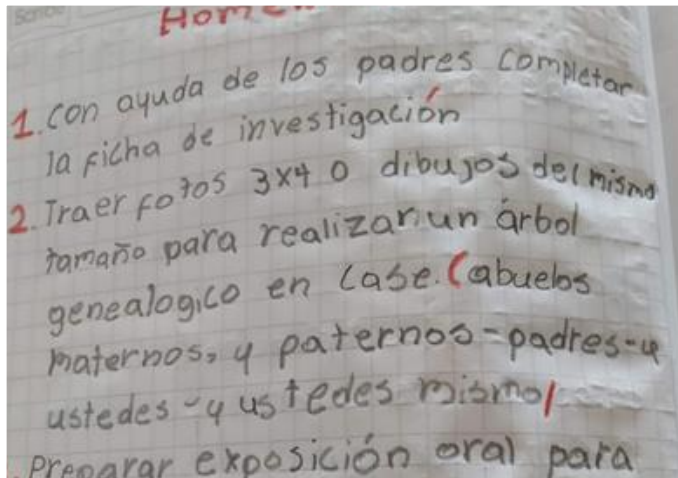 Home
1. con ayuda de los padres completar
la ficha de investigación
2. Traer fotos 3x4 o dibujos del mismo
tamaño para realizar un árbol
genealogico en case. (abuelos
maternos, y paternos-padres-y
ustedes-y ustedes mismo)
Preparar exposición oral para